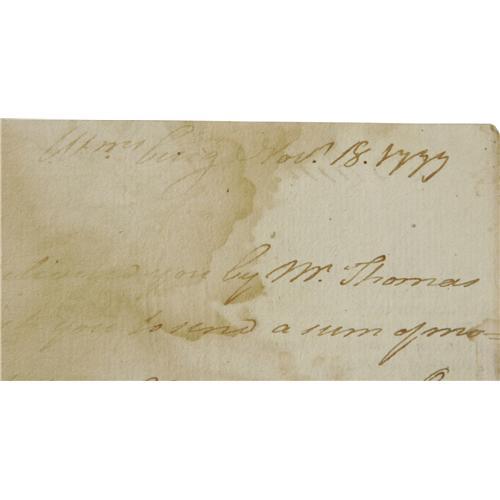 Wmsburg Novr. 18. 1777
you by Mr. Thomas
you to send a sum of mo=